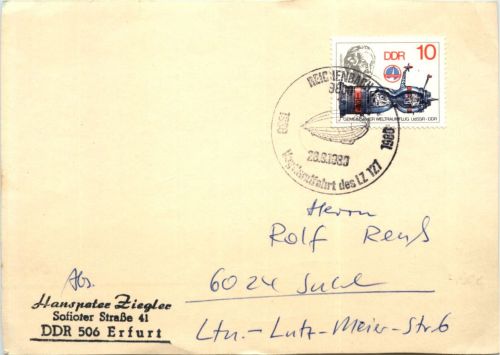 DDR 10
GEMEINSAMER WELTRAUMFLUG UdSSR-DDR
REICHENBACH
1930
1980
28.9.1980
des LZ 127
Herrn
Rolf Renß
6024 Suhl
Ltn.-Lutz-Meier-Str. 6
Abs.
Hanspeter Ziegler
Sofioter Straße 41
DDR 506 Erfurt